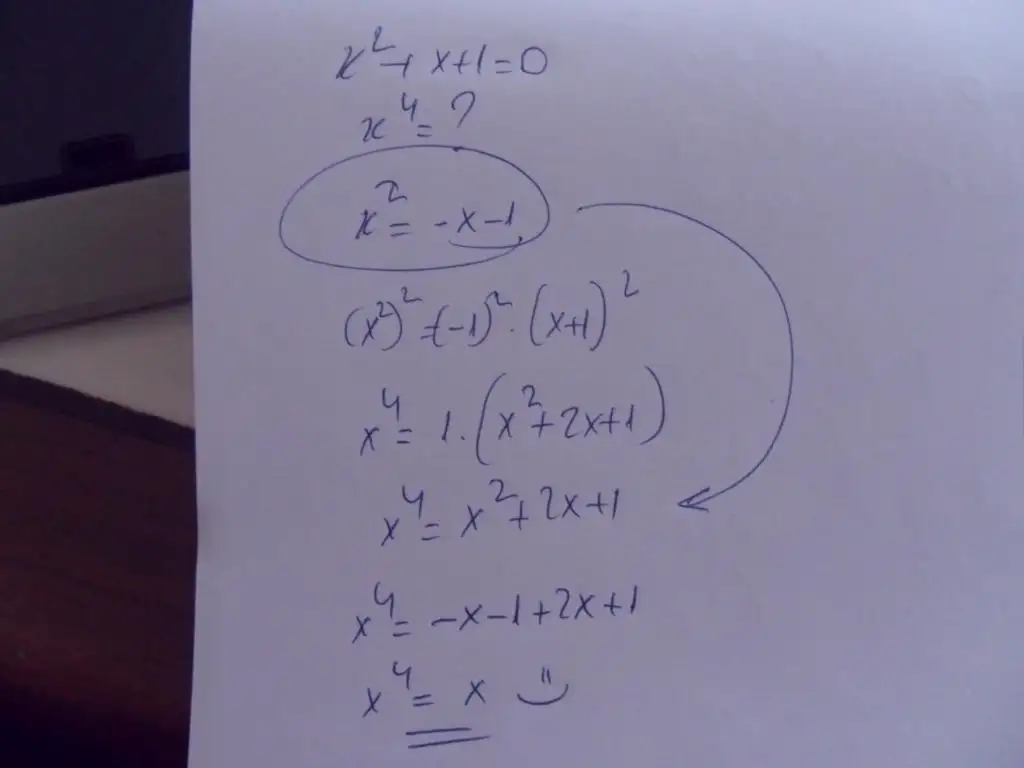 x²+x+1=0
x⁴=?
x²=-x-1
(x²)²=(-1)².(x+1)²
x⁴=1.(x²+2x+1)
x⁴=x²+2x+1
x⁴=-x-1+2x+1
x⁴=x